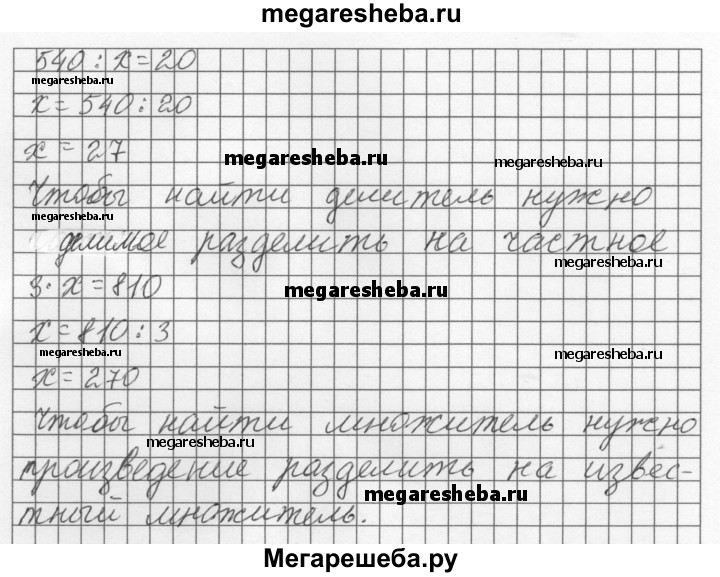 megaresheba.ru
540 : x = 20
megaresheba.ru
x = 540 : 20
x = 27
megaresheba.ru
megaresheba.ru
Чтобы найти делитель нужно
megaresheba.ru
делимое разделить на частное
megaresheba.ru
3 · x = 810
megaresheba.ru
x = 810 : 3
megaresheba.ru
megaresheba.ru
x = 270
Чтобы найти множитель нужно
megaresheba.ru
произведение разделить на извес-
megaresheba.ru
тный множитель.
Мегарешеба.ру